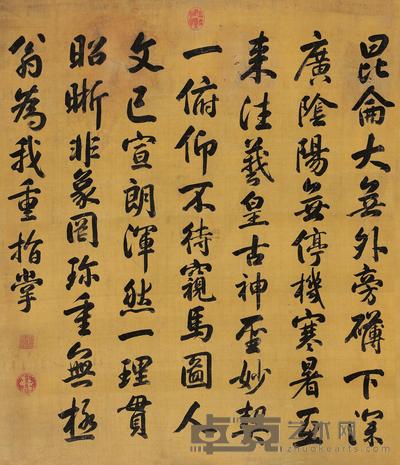 昆侖大無外旁礴下深
廣陰陽無停機寒暑互
來往羲皇古神聖妙契
一俯仰不待窺馬圖人
文已宣朗渾然一理貫
昭晰非象罔珍重無極
翁為我重指掌
卓克艺术网
www.zhuokearts.com